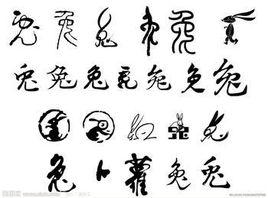 兔 兔 兔 兔 兔
兔 兔 兔 兔 兔 兔 兔
兔 兔
兔 卜 蘿 兔 兔